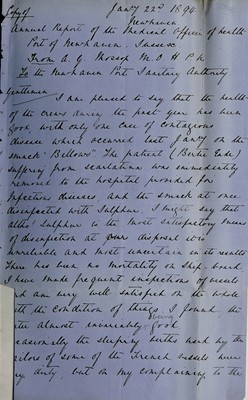 Copy of
Jany 22nd 1894
Newhaven
Annual Report of the Medical Officer of health
Port of Newhaven. Sussex
From A. G. Mossop M.O.H. P.A.
To the Newhaven Port Sanitary Authority
Gentlemen
I am pleased to say that the health
of the crews during the past year has been
good, with only one case of contageous
disease which occurred last Jany on the
smack "Bellows" The patient (Bertie Eade)
suffering from scarlatina was immediately
removed to the hospital provided for
Infectious diseases, and the smack at once
disinfected with Sulphur. I might say that
altho' Sulphur is the most satisfactory means
of disinfection at our disposal it is
unreliable and most uncertain in its results
There has been no mortality on ship board
I have made frequent inspections of vessels
and am very well satisfied on the whole
with the condition of things, I found the
almost invariably being good
occasionally the sleeping berths used by the
sailors of some of the French vessels were
dirty, but on my complaining to the